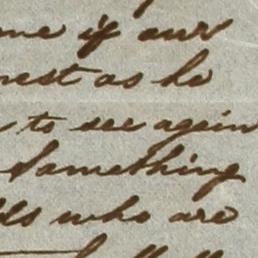 me if our
rest as he
to see again
Something
who are